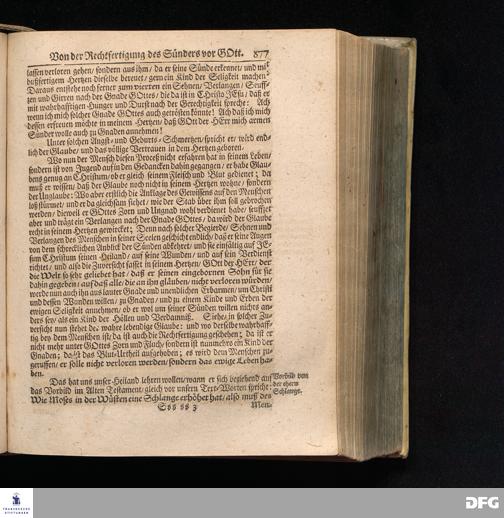 Von der Rechtfertigung des Sünders vor GOtt. 877
lassen verloren gehen/ sondern aus ihm/ da er seine Sünde erkennet/ und mit
bußfertigem Hertzen dieselbe bereuet/ gern ein Kind der Seligkeit machen:
Daraus entstehe noch ferner zum vierten ein Sehnen/ Verlangen/ Seuff-
zen und Girren nach der Gnade GOttes/ die da ist in Christo JEsu/ daß er
mit wahrhafftigen Hunger und Durst nach der Gerechtigkeit spreche: Ach
wenn ich mich solcher Gnade GOttes auch getrösten könnte! Ach daß ich mich
dessen erfreuen möchte in meinem Hertzen/ daß GOtt der HErr mich armen
Sünder wolle auch zu Gnaden annehmen!
Unter solchen Angst- und Geburts-Schmertzen/ spricht er/ wird end-
lich der Glaube/ und das völlige Vertrauen in dem Hertzen geboren.
Wo nun der Mensch diesen Proceß nicht erfahren hat in seinem Leben/
sondern ist von Jugend auf in den Gedancken dahin gegangen/ er habe Glau-
bens genug an Christum/ ob er gleich seinem Fleisch und Blut gedienet; da
muß er wissen/ daß der Glaube noch nicht in seinem Hertzen wohne/ sondern
der Unglaube: Wo aber erstlich die Anklage des Gewissens auf den Menschen
loß stürmet/ und er da gleichsam stehet/ wie der Stab über ihm soll gebrochen
werden/ dieweil er GOttes Zorn und Ungnad wohl verdienet habe/ seuffzet
aber und trägt ein Verlangen nach der Gnade GOttes/ da wird der Glaube
recht in seinem Hertzen gewircket; Denn nach solcher Begierde/ Sehnen und
Verlangen des Menschen in seiner Seelen geschicht endlich/ daß er seine Augen
von dem schrecklichen Anblick der Sünden abkehret/ und sie einfältig auf JE-
sum Christum seinen Heiland/ auf seine Wunden/ und auf sein Verdienst
richtet/ und also die Zuversicht fasset in seinem Hertzen/ GOtt der HErr/ der
die Welt so sehr geliebet hat/ daß er seinen eingebornen Sohn für sie
dahin gegeben/ auf daß alle/ die an ihn gläuben/ nicht verloren würden/
werde nun auch ihn aus lauter Gnade und unendlichen Erbarmen/ um Christi
und dessen Wunden willen/ zu Gnaden/ und zu einem Kinde und Erben der
ewigen Seligkeit annehmen/ ob er wol um seiner Sünden willen nichts an-
ders sey/ als ein Kind der Höllen und Verdamniß. Siehe/ in solcher Zu-
versicht nun stehet der wahre lebendige Glaube: und wo derselbe wahrhaff-
tig bey dem Menschen ist/ da ist auch die Rechtfertigung geschehen; da ist er
nicht mehr unter GOttes Zorn und Fluch/ sondern ist nunmehro ein Kind der
Gnaden; da ist das Blut-Urtheil aufgehoben; es wird dem Menschen zu-
geruffen/ er solle nicht verloren werden/ sondern das ewige Leben ha-
ben.
Das hat uns unser Heiland lehren wollen/ wann er sich beziehend auf
das Vorbild im Alten Testament/ gleich vor unsern Text-Worten spricht:
Wie Moses in der Wüsten eine Schlange erhöhet hat/ also muß des
Vorbild von
der ehern
Schlange.
Sss ss 3 Men-
FRANCKESCHE
STIFTUNGEN
DFG